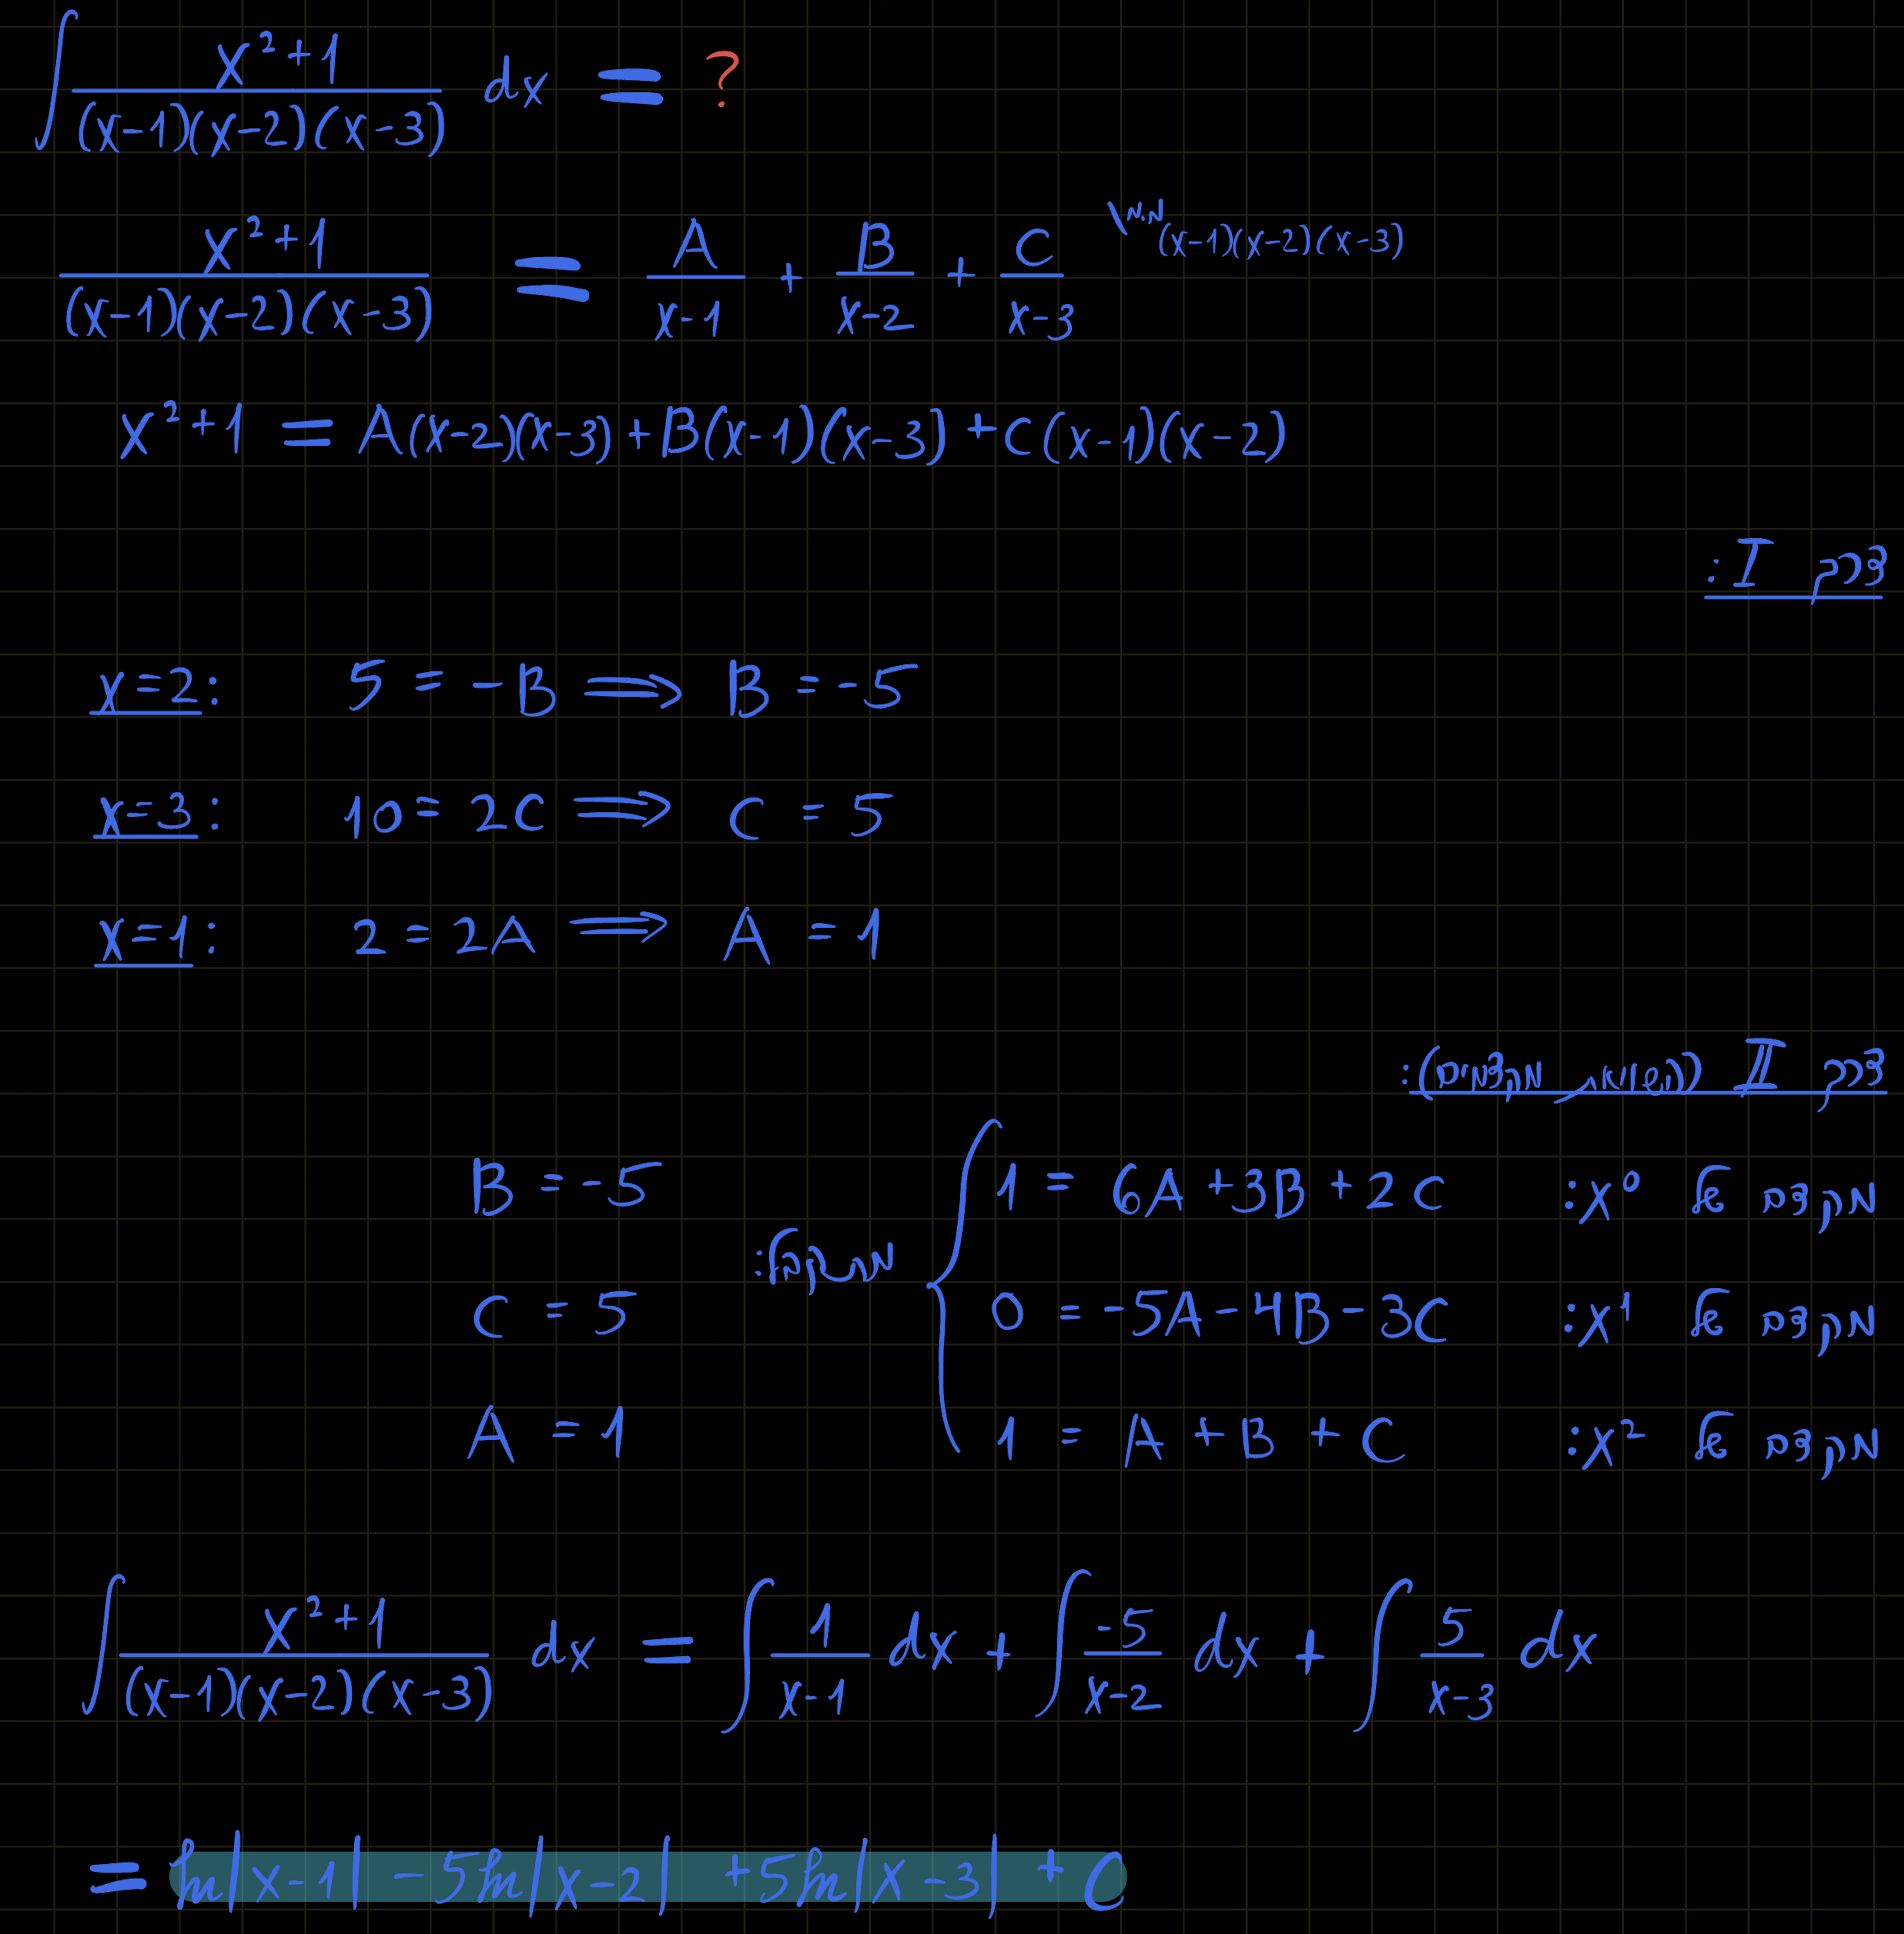 ∫ (x²+1)/((x-1)(x-2)(x-3)) dx = ?
(x²+1)/((x-1)(x-2)(x-3)) = A/(x-1) + B/(x-2) + C/(x-3) \ מ.מ (x-1)(x-2)(x-3)
x²+1 = A(x-2)(x-3) + B(x-1)(x-3) + C(x-1)(x-2)
דרך I:
x=2: 5 = -B ⟹ B = -5
x=3: 10 = 2C ⟹ C = 5
x=1: 2 = 2A ⟹ A = 1
דרך II (השוואת מקדמים):
מקדם של x⁰: 1 = 6A + 3B + 2C
מקדם של x¹: 0 = -5A - 4B - 3C
מקדם של x²: 1 = A + B + C
B = -5
C = 5
A = 1
∫ (x²+1)/((x-1)(x-2)(x-3)) dx = ∫ 1/(x-1) dx + ∫ -5/(x-2) dx + ∫ 5/(x-3) dx
= ln|x-1| - 5ln|x-2| + 5ln|x-3| + C